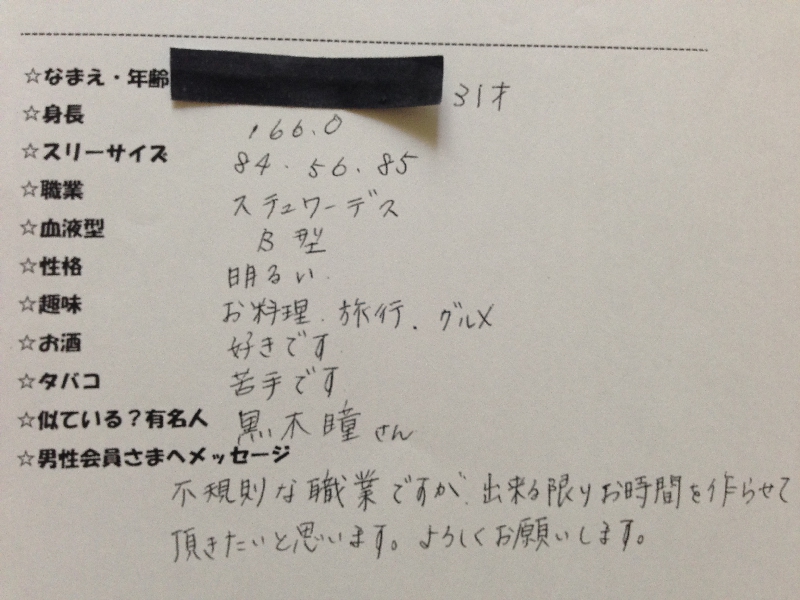 ☆なまえ・年齢 31才
☆身長 166.0
☆スリーサイズ 84.56.85
☆職業 スチュワーデス
☆血液型 B型
☆性格 明るい.
☆趣味 お料理.旅行.グルメ
☆お酒 好きです
☆タバコ 苦手です
☆似ている?有名人 黒木瞳さん
☆男性会員さまへメッセージ
不規則な職業ですが、出来る限りお時間を作らせて
頂きたいと思います。よろしくお願いします。